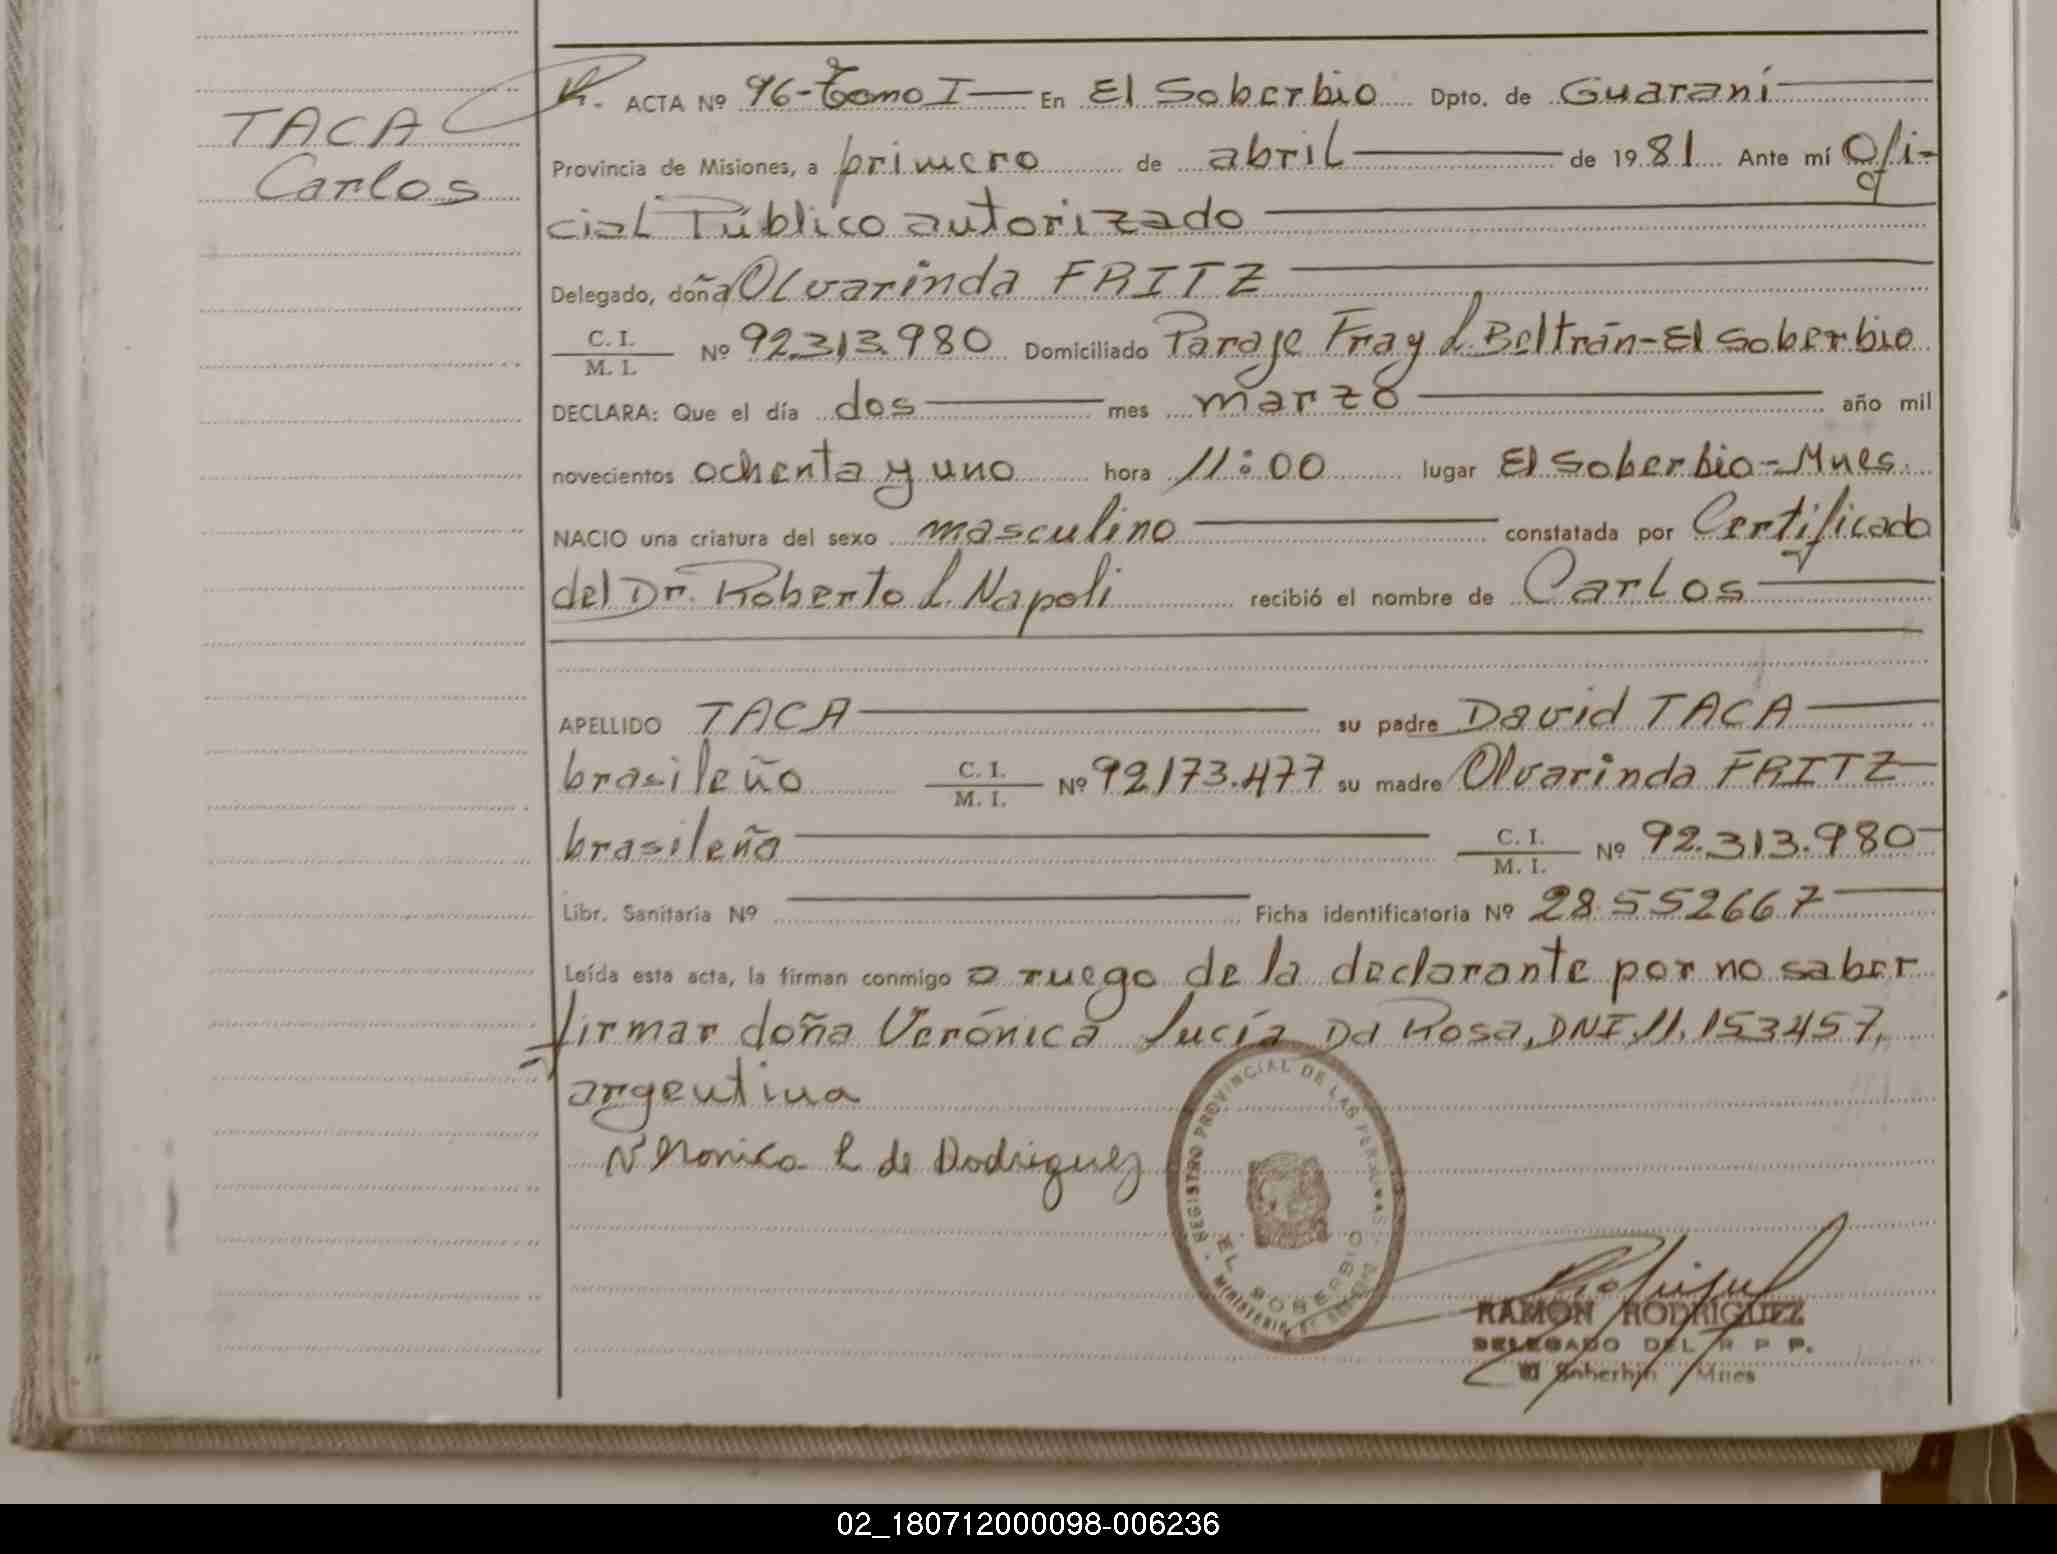 TACA
Carlos
R. ACTA Nº 96-Tomo I En El Soberbio Dpto. de Guaraní
Provincia de Misiones, a primero de abril de 1981 Ante mí Ofi-
cial Público autorizado
Delegado, doña Olvarinda FRITZ
C. I.
M. I.
Nº 92.313.980 Domiciliado Paraje Fray L. Beltrán-El Soberbio
DECLARA: Que el día dos mes marzo año mil
novecientos ochenta y uno hora 11:00 lugar El Soberbio-Mnes.
NACIO una criatura del sexo masculino constatada por Certificado
del Dr. Roberto L. Napoli recibió el nombre de Carlos
APELLIDO TACA su padre David TACA
brasileño C. I.
M. I.
Nº 92.173.477 su madre Olvarinda FRITZ
brasileña C. I.
M. I.
Nº 92.313.980
Libr. Sanitaria Nº Ficha identificatoria Nº 28.552667
Leída esta acta, la firman conmigo a ruego de la declarante por no saber
firmar doña Verónica Lucía Da Rosa, DNI.11.153457,
argentina
de Rodriguez
REGISTRO PROVINCIAL DE LAS PERSONAS
EL SOBERBIO
MINISTERIO DE GOBIERNO
RAMON RODRIGUEZ
DELEGADO DEL R P P.
El Soberbio Mnes
02_180712000098-006236